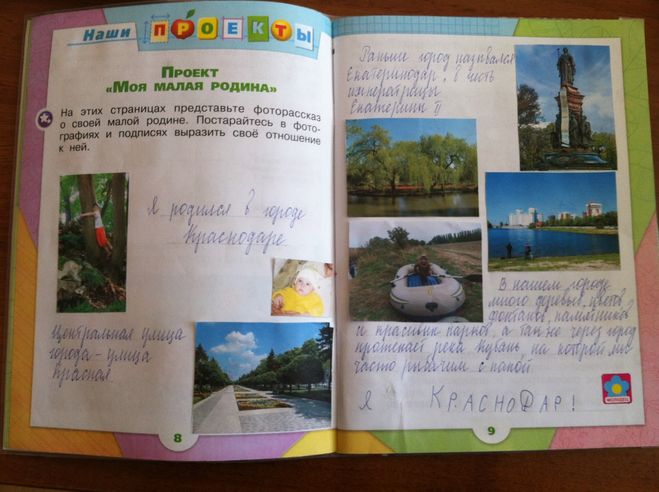 Наши ПРОЕКТЫ
ПРОЕКТ
«МОЯ МАЛАЯ РОДИНА»
На этих страницах представьте фоторассказ
о своей малой родине. Постарайтесь в фото-
графиях и подписях выразить своё отношение
к ней.
Я родился в городе
Краснодаре
Центральная улица
города – улица
Красная
8
Раньше город назывался
Екатеринодар, в честь
императрицы
Екатерины II
В нашем городе
много деревьев, цветов,
фонтанов, памятников
и красивых парков, а так же через город
протекает река Кубань на которой мы
часто рыбачим с папой.
Я КРАСНОДАР!
МОЛОДЕЦ
9